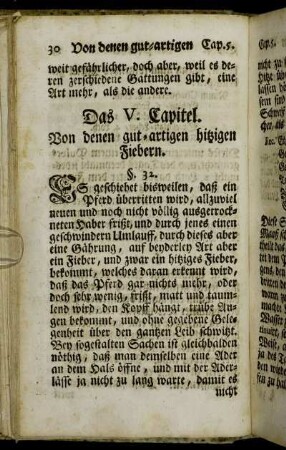 30 Von denen gut-artigen Cap. 5.
weit gefährlicher, doch aber, weil es de-
ren zerschiedene Gattungen gibt, eine
Art mehr, als die andere.
Das V. Capitel.
Von denen gut-artigen hitzigen
Fiebern.
§. 32.
ES geschiehet bisweilen, daß ein
Pferd überritten wird, allzuviel
neuen und noch nicht völlig ausgetrock-
neten Haber frißt, und durch jenes einen
geschwindern Umlauff, durch dieses aber
eine Gährung, auf beyderley Art aber
ein Fieber, und zwar ein hitziges Fieber,
bekommt, welches daran erkennt wird,
daß das Pferd gar nichts mehr, oder
doch sehr wenig, frißt, matt und taum-
lend wird, den Kopff hängt, trübe Au-
gen bekommt, und ohne gegebene Gele-
genheit über den gantzen Leib schwitzt.
Bey sogestalten Sachen ist gleichbalden
nöthig, daß man demselben eine Ader
an dem Hals öffne, und mit der Ader-
lässe ja nicht zu lang warte, damit es
nicht